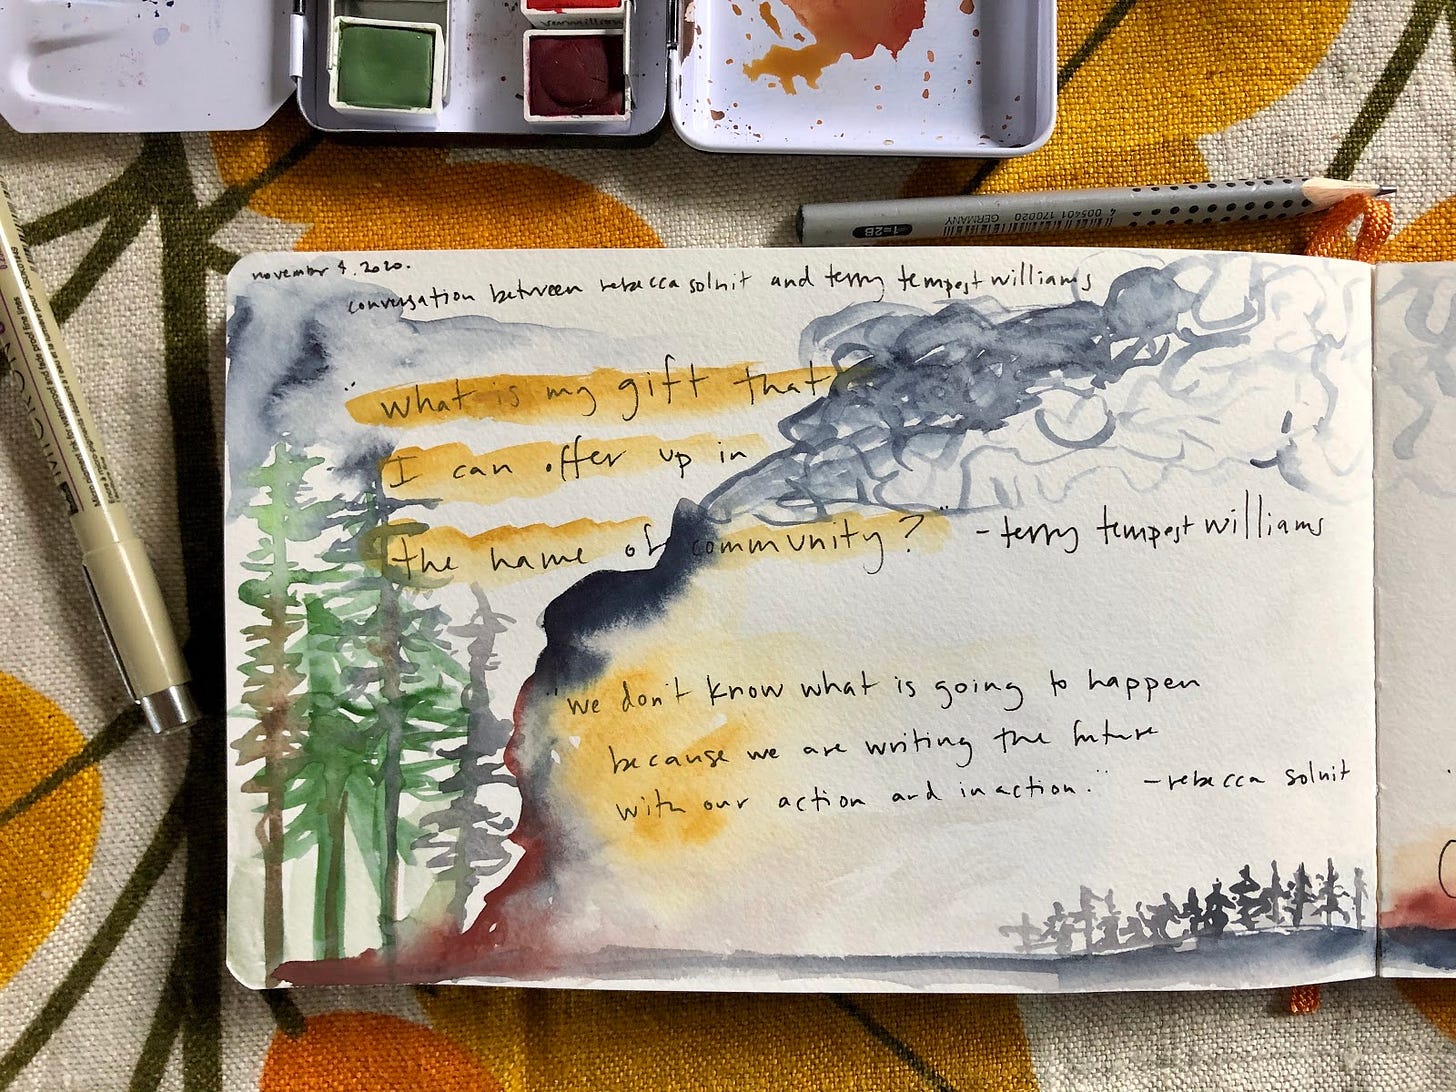 Vermillion
1=2B
GERMANY 005401 170020 4
MICRON
november 4, 2020.
conversation between rebecca solnit and terry tempest williams
"what is my gift that
I can offer up in
the name of community?" - terry tempest williams
"we don't know what is going to happen
because we are writing the future
with our action and inaction." - rebecca solnit